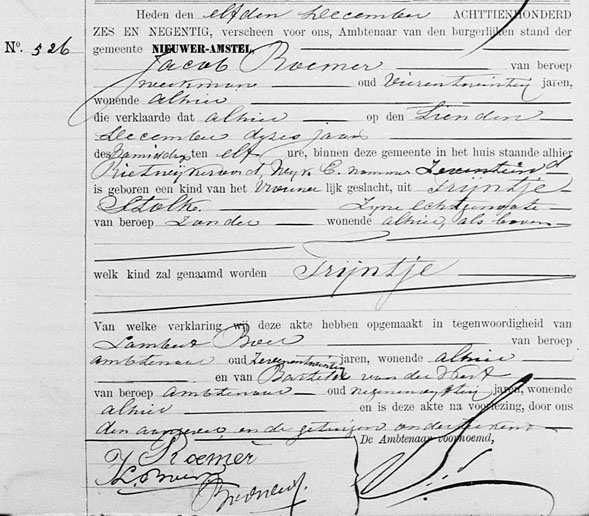 Heden den elfden December ACHTTIENHONDERD
ZES EN NEGENTIG, verscheen voor ons, Ambtenaar van den burgerlijken stand der
No. 526
gemeente NIEUWER-AMSTEL,
Jacob Roemer van beroep
werkman oud Vierentwintig jaren,
wonende alhier
die verklaarde dat alhier op den Tienden
December dezes jaars
des Namiddags ten elf ure, binnen deze gemeente in het huis staande alhier
Rietwijkeroord, Wijk E. nommer
is geboren een kind van het Vrouwelijk geslacht, uit Trijntje
Stolk. Zijne echtgenoote
van beroep Zonder wonende alhier, als boven
welk kind zal genaamd worden Trijntje
Van welke verklaring wij deze akte hebben opgemaakt in tegenwoordigheid van
Lambert Boer van beroep
ambtenaar oud jaren, wonende alhier
en van van der
van beroep ambtenaar oud jaren, wonende
alhier en is deze akte na voorlezing, door ons
den aangever en de getuigen onderteekend
De Ambtenaar voornoemd,
J. Roemer
L. Boer